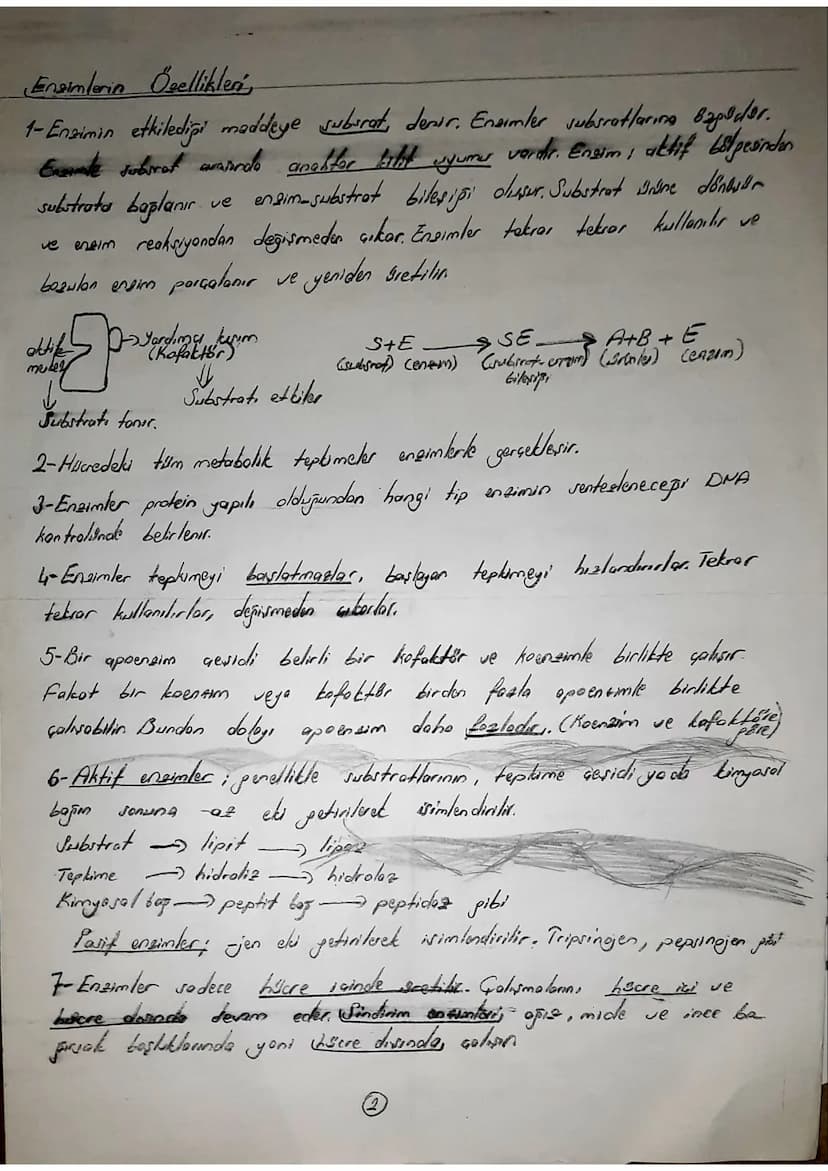 Enzimlerin Özellikleri
1-Enzimin etkilediği maddeye subsrat, denir. Enzimler subsratlarına özgüdür.
Enzimle subsrat arasında anahtar kilit uyumu vardır. Enzim; aktif bölgesinden
substrata bağlanır ve enzim-substrat bileşiği oluşur. Substrat ürüne dönüşür
ve enzim reaksiyondan değişmeden çıkar. Enzimler tekrar tekrar kullanılır ve
bozulan enzim parçalanır ve yeniden üretilir.
aktif merkez
Yardımcı kısım
(Kofaktör)
Substratı etkiler
Substratı tanır.
S+E → SE → A+B + E
(subsrat) (enzim) (subsrat-enzim bileşiği) (ürünler) (enzim)
2-Hücredeki tüm metabolik tepkimeler enzimlerle gerçekleşir.
3-Enzimler protein yapılı olduğundan hangi tip enzimin sentezleneceği DNA
kontrolünde belirlenir.
4-Enzimler tepkimeyi başlatmazlar, başlayan tepkimeyi hızlandırırlar. Tekrar
tekrar kullanılırlar, değişmeden çıkarlar.
5-Bir apoenzim çeşidi belirli bir kofaktör ve koenzimle birlikte çalışır.
Fakat bir koenzim veya kofaktör birden fazla apoenzimle birlikte
çalışabilir. Bundan dolayı apoenzim daha fazladır. (Koenzim ve kofaktöre göre)
6-Aktif enzimler; genellikle substratlarının, tepkime çeşidi ya da kimyasal
bağın sonuna -az eki getirilerek isimlendirilir.
Substrat → lipit → lipaz
Tepkime → hidroliz → hidrolaz
Kimyasal bağ → peptit bağ → peptidaz gibi
Pasif enzimler; -jen eki getirilerek isimlendirilir. Tripsinojen, pepsinojen gibi
7-Enzimler sadece hücre içinde üretilir. Çalışmalarını hücre içi ve
hücre dışında devam eder. Sindirim enzimleri; ağız, mide ve ince ba
ğırsak boşluklarında yani hücre dışında çalışır
2